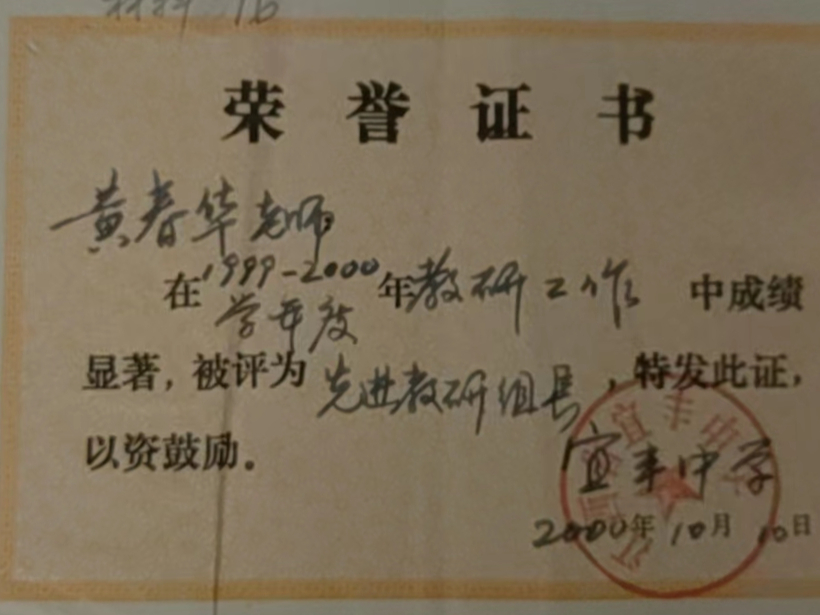 材料 16
荣誉证书
黄春华老师
在1999-2000学年度年教研工作中成绩
显著，被评为先进教研组长，特发此证，
以资鼓励。
宜丰中学
2000年10月10日
江西省宜丰中学